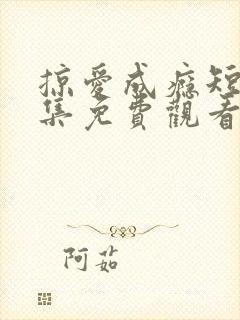 掠愛成癮短
集免費觀看
阿茹